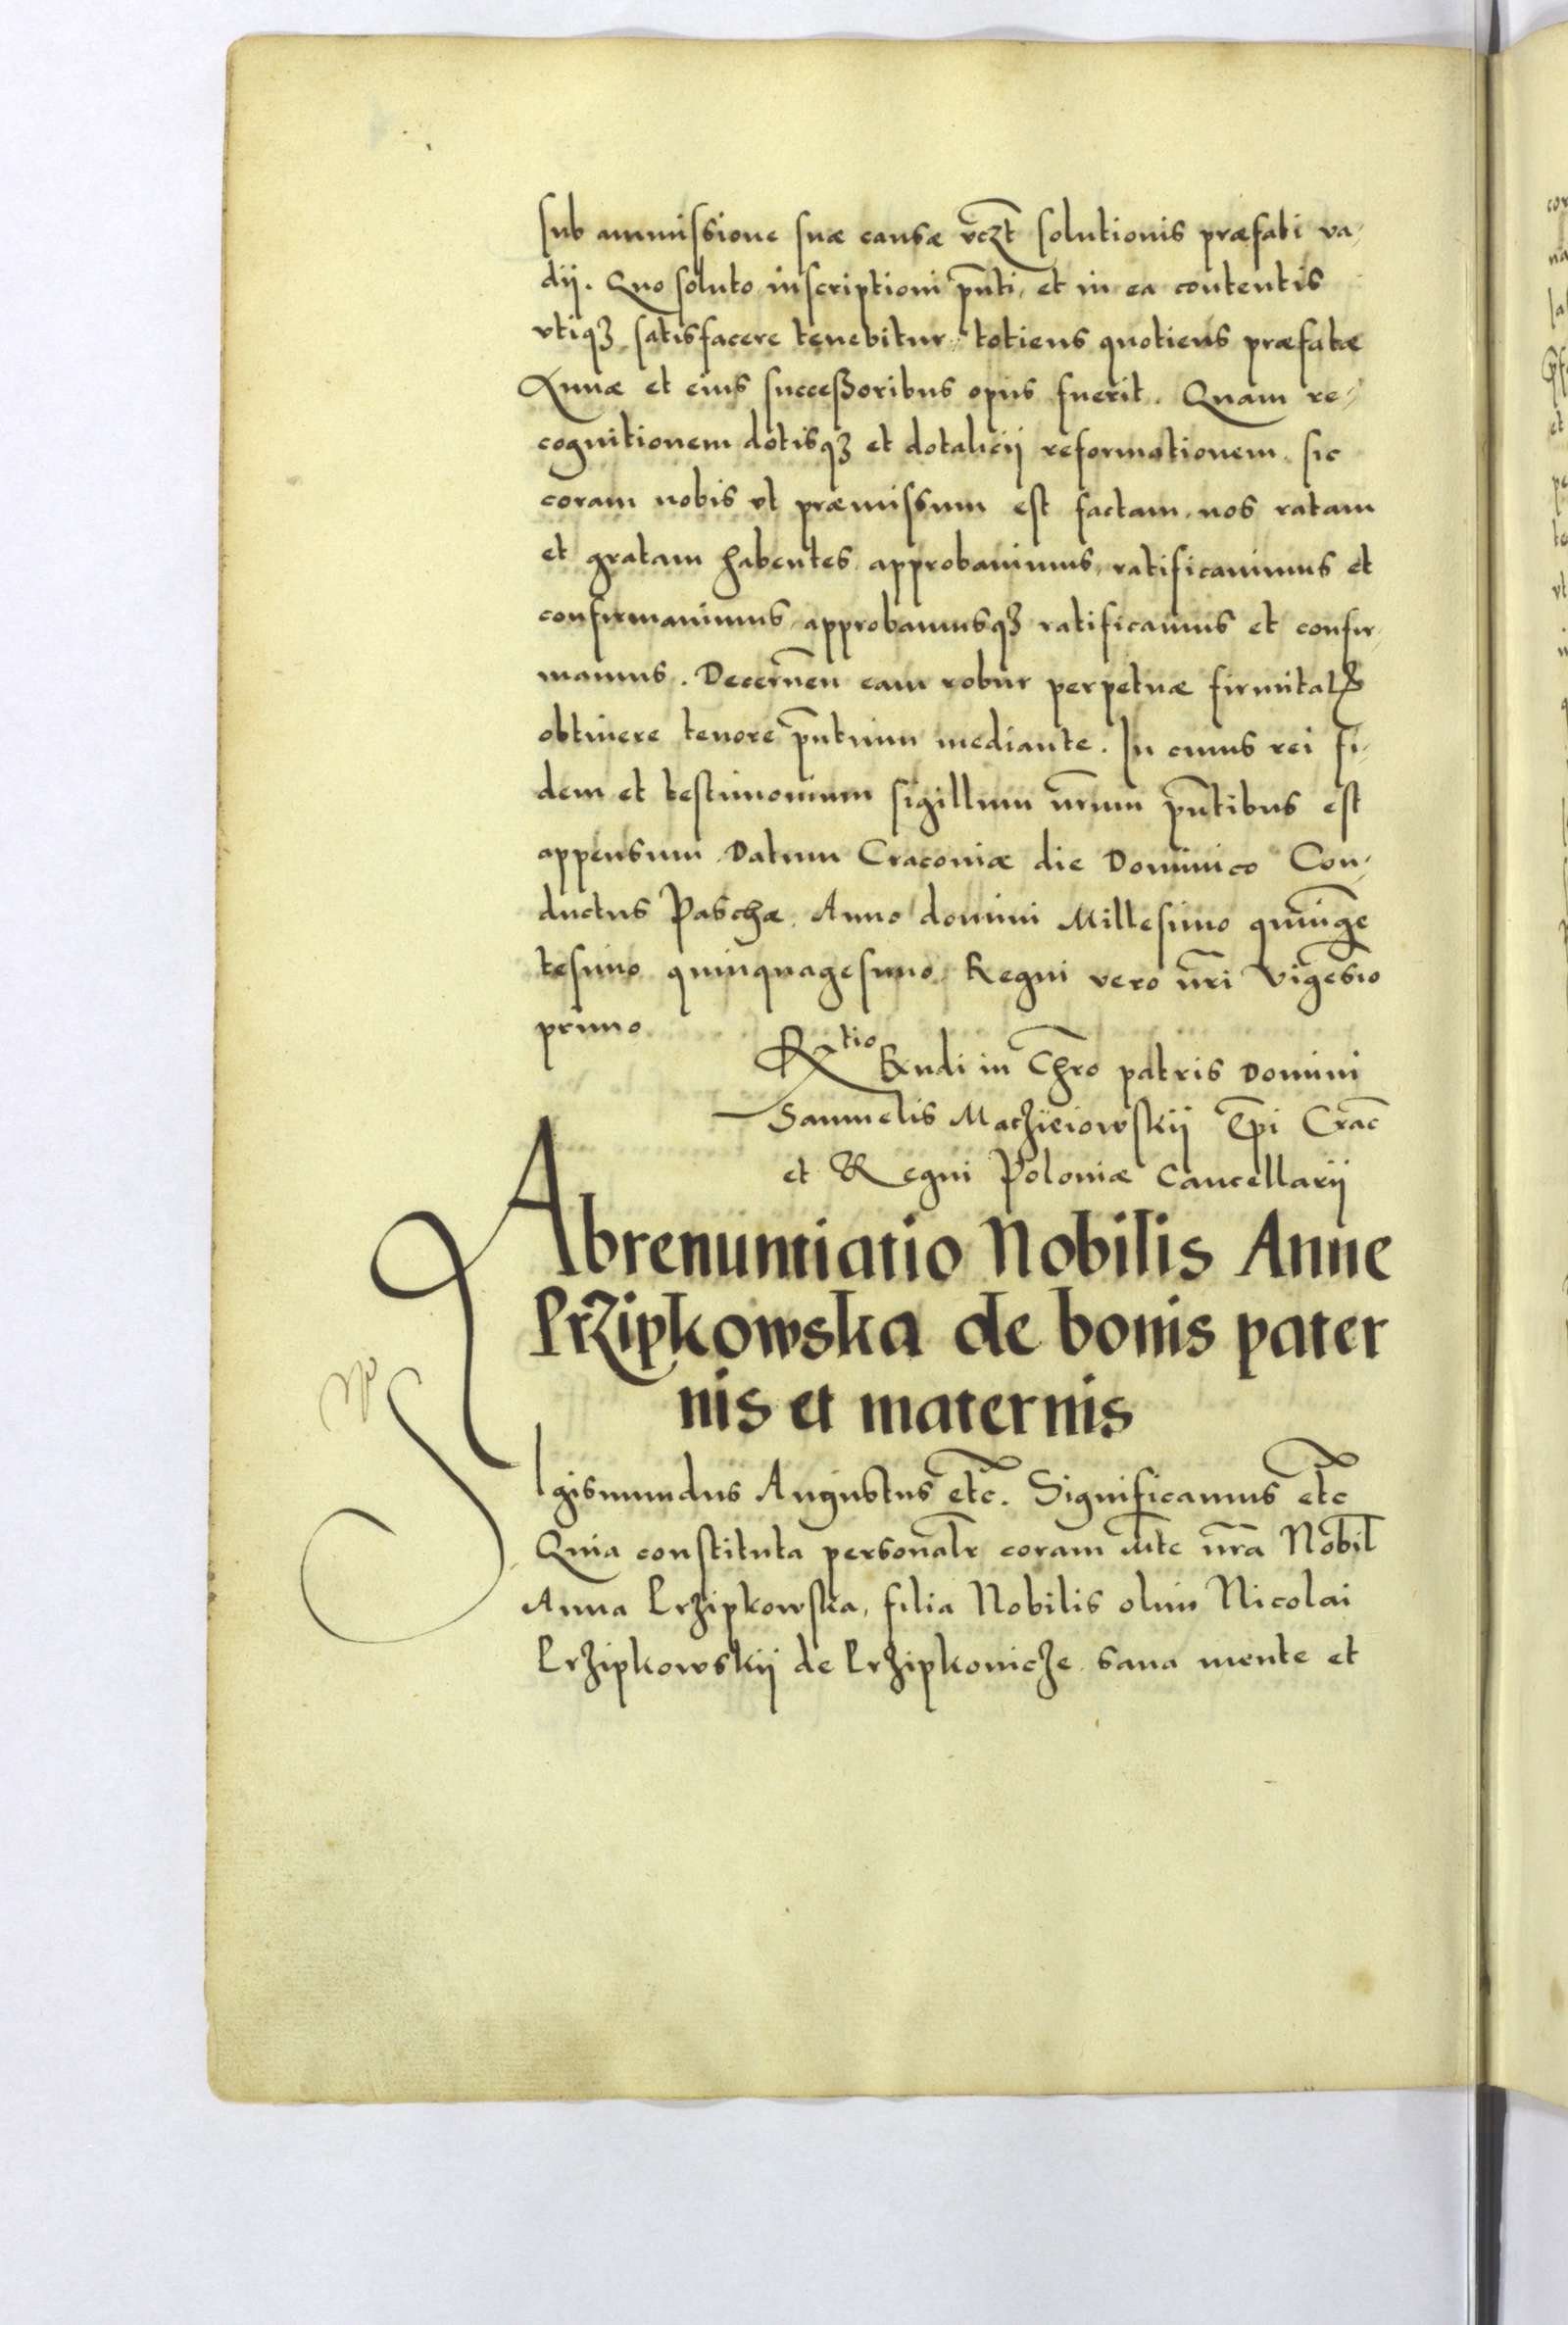 sub ammissione suæ causæ vczt solutionis præfati va-
dij. Quo soluto inscriptioni pnti, et in ea contentis
vtiqʒ satisfacere tenebitur totiens quotiens præfatæ
Annæ et eius successoribus opus fuerit. Quam re-
cognitionem dotisqʒ et dotalicij reformationem sic
coram nobis vt præmissum est factam nos ratam
et gratam habentes approbauimus, ratificauimus et
confirmauimus, approbamusqʒ ratificamus et confir-
mamus. Decernen eam robur perpetuæ firmitatꝭ
obtinere tenore pntium mediante. In cuius rei fi-
dem et testimonium sigillum nrum pntibus est
appensum Datum Cracouiæ die Dominico Con-
ductus Paschæ. Anno domini Millesimo quinge
tesimo quinquagesimo Regni vero nri Vigesio
primo
Rtio Rndi in Chro patris Domini
Samuelis Macʒieiowskij Epi Crac
et Regni Poloniæ Cancellarij
Abrenuntiatio Nobilis Anne
Prʒipkowska de bonis pater
nis et maternis
Sigismundus Augustus etc. Significamus etc
Quia constituta personalr coram Mte nra Nobil
Anna Prʒipkowska, filia Nobilis olim Nicolai
Prʒipkowskij de Prʒipkouicʒe sana mente et